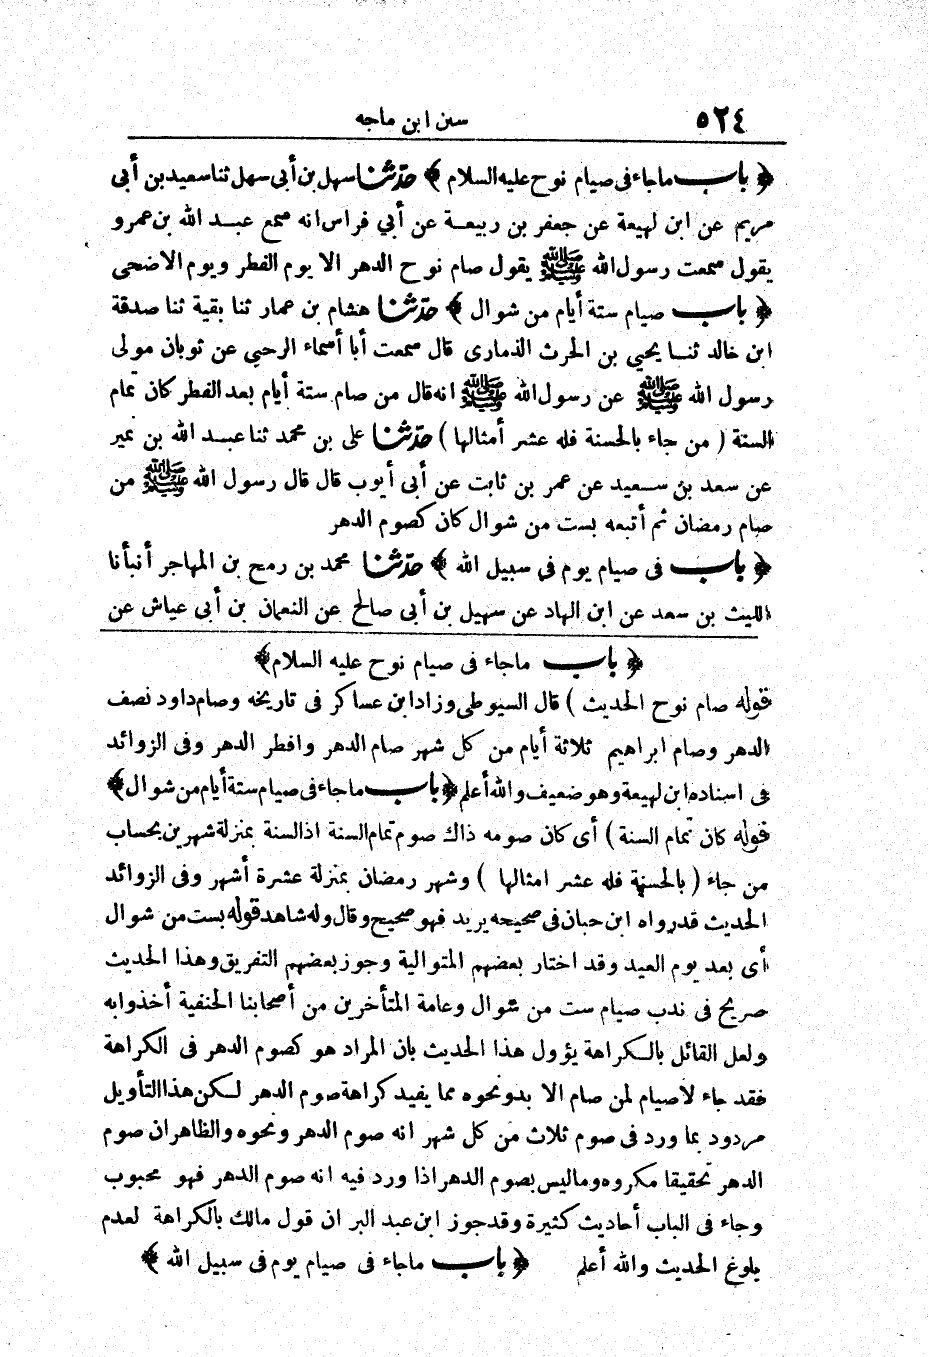 ٥٢٤ سنن ابن ماجه
﴿ باب ماجاء فى صيام نوح عليه السلام ﴾ حدثنا سهل بن أبى سهل ثنا سعيد بن أبى
مريم عن ابن لهيعة عن جعفر بن ربيعة عن أبي فراس انه سمع عبد الله بن عمرو
يقول سمعت رسول الله ﷺ يقول صام نوح الدهر الا يوم الفطر ويوم الاضحى
﴿ باب صيام ستة أيام من شوال ﴾ حدثنا هشام بن عمار ثنا بقية ثنا صدقة
ابن خالد ثنا يحيي بن الحرث الذمارى قال سمعت أبا أسماء الرحبي عن ثوبان مولى
رسول الله ﷺ عن رسول الله ﷺ انه قال من صام ستة أيام بعد الفطر كان تمام
السنة ( من جاء بالحسنة فله عشر أمثالها ) حدثنا على بن محمد ثنا عبد الله بن نمير
عن سعد بن سعيد عن عمر بن ثابت عن أبى أيوب قال قال رسول الله ﷺ من
صام رمضان ثم أتبعه بست من شوال كان كصوم الدهر
﴿ باب فى صيام يوم في سبيل الله ﴾ حدثنا محمد بن رمح بن المهاجر أنبأنا
الليث بن سعد عن ابن الهاد عن سهيل بن أبى صالح عن النعمان بن أبى عياش عن
﴿ باب ماجاء فى صيام نوح عليه السلام ﴾
قوله صام نوح الحديث ) قال السيوطى وزاد ابن عساكر فى تاريخه وصام داود نصف
الدهر وصام ابراهيم ثلاثة أيام من كل شهر صام الدهر وافطر الدهر وفى الزوائد
فى اسناده ابن لهيعة وهو ضعيف والله أعلم ﴿ باب ماجاء فى صيام ستة أيام من شوال ﴾
قوله كان تمام السنة ) أى كان صومه ذاك صوم تمام السنة اذ السنة بمنزلة شهرين بحساب
من جاء ( بالحسنة فله عشر امثالها ) وشهر رمضان بمنزلة عشرة أشهر وفى الزوائد
الحديث قد رواه ابن حبان فى صحيحه يريد فهو صحيح وقال وله شاهد قوله بست من شوال
أى بعد يوم العيد وقد اختار بعضهم المتوالية وجوز بعضهم التفريق وهذا الحديث
صريح فى ندب صيام ست من شوال وعامة المتأخرين من أصحابنا الحنفية أخذوا به
ولعل القائل بالكراهة يؤول هذا الحديث بان المراد هو كصوم الدهر فى الكراهة
فقد جاء لاصيام لمن صام الا بد ونحوه مما يفيد كراهة صوم الدهر لكن هذا التأويل
مردود بما ورد فى صوم ثلاث من كل شهر انه صوم الدهر ونحوه والظاهر ان صوم
الدهر تحقيقا مكروه وماليس بصوم الدهر اذا ورد فيه انه صوم الدهر فهو محبوب
وجاء فى الباب أحاديث كثيرة وقد جوز ابن عبد البر ان قول مالك بالكراهة لعدم
بلوغ الحديث والله أعلم ﴿ باب ماجاء فى صيام يوم فى سبيل الله ﴾